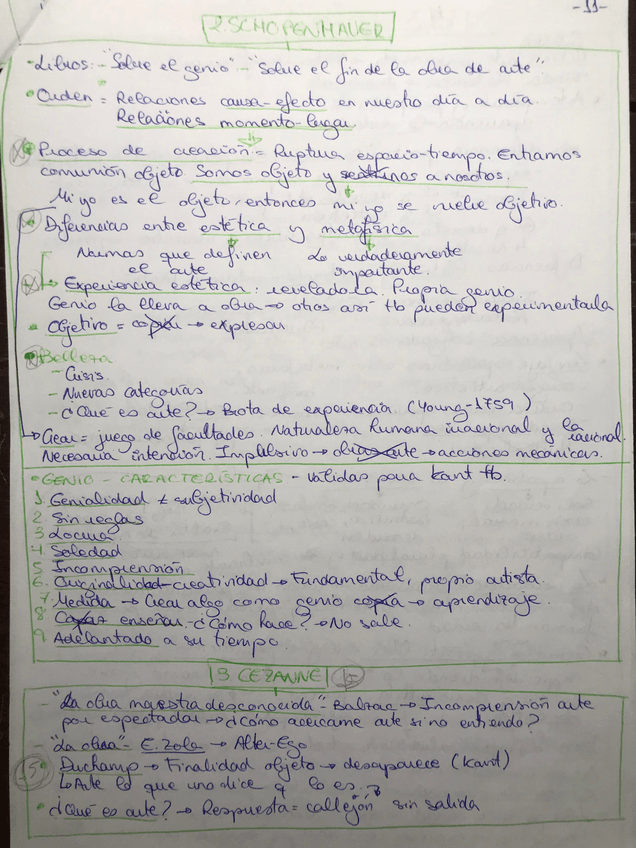 -11-
2. SCHOPENHAUER
- Libros: - "Sobre el genio" - "Sobre el fin de la obra de arte"
• Orden = Relaciones causa-efecto en nuestro día a día.
Relaciones momento-lugar.
Proceso de creación = Ruptura espacio-tiempo. Entramos
comunión objeto. Somos objeto y sentimos a nosotros.
Mi yo es el objeto, entonces mi yo se vuelve objetivo.
Diferencias entre estética y metafísica
Normas que definen Lo verdaderamente
el arte importante.
Experiencia estética: reveladora. Propia genio.
Genio la lleva a obra → otros así tb pueden experimentarla
• Objetivo = copiar → expresar
Belleza
- Crisis.
- Nuevas categorías
- ¿Qué es arte? → Brota de experiencia (Young-1759)
→ Crear = juego de facultades. Naturaleza humana irracional y la racional.
Necesaria intención. Impulsivo → obras arte → acciones mecánicas.
• GENIO - CARACTERÍSTICAS - válidas para Kant tb.
1. Genialidad ≠ subjetividad
2. Sin reglas
3. Locura
4. Soledad
5. Incomprensión
6. Originalidad-creatividad → Fundamental, propio artista.
7. Medida → Crear algo como genio copia → aprendizaje.
8. enseñar. ¿Cómo hace? → No sale.
9. Adelantado a su tiempo.
3. CEZANNE 15
- "La obra maestra desconocida" - Balzac → Incomprensión arte
por espectador → ¿cómo acercarme arte si no entiendo?
- "La obra" - E. Zola → Alter-Ego
Duchamp → Finalidad objeto → desaparece (Kant)
↳ Arte lo que uno dice q lo es.
• ¿Qué es arte? → Respuesta = callejón sin salida